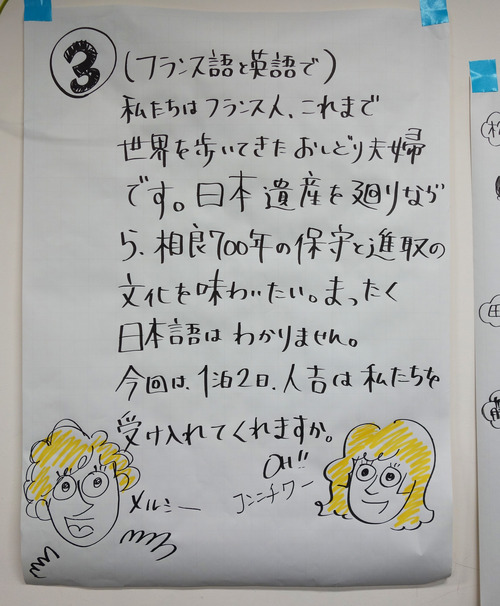 3
(フランス語と英語で)
私たちはフランス人、これまで
世界を歩いてきたおしどり夫婦
です。日本遺産を廻りなが
ら、相良700年の保守と進取の
文化を味わいたい。まったく
日本語はわかりません。
今回は、1泊2日、人吉は私たちを
受け入れてくれますか。
メルシー
OH!!
コンニチワー